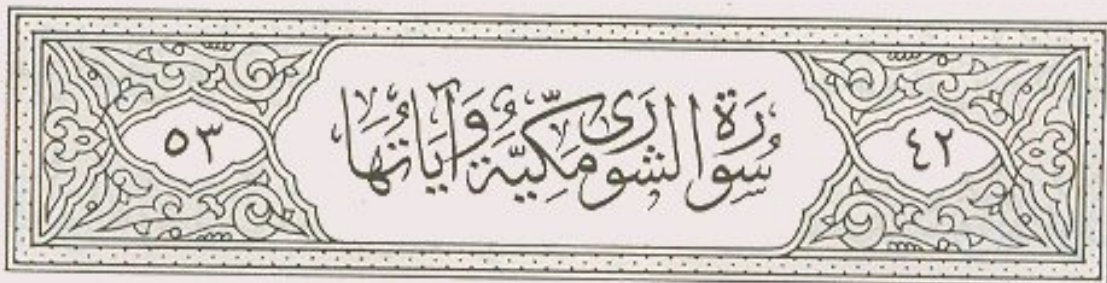 ٤٢
سُورَةُ الشُّورَى مَكِّيَّةٌ وَآيَاتُهَا
٥٣